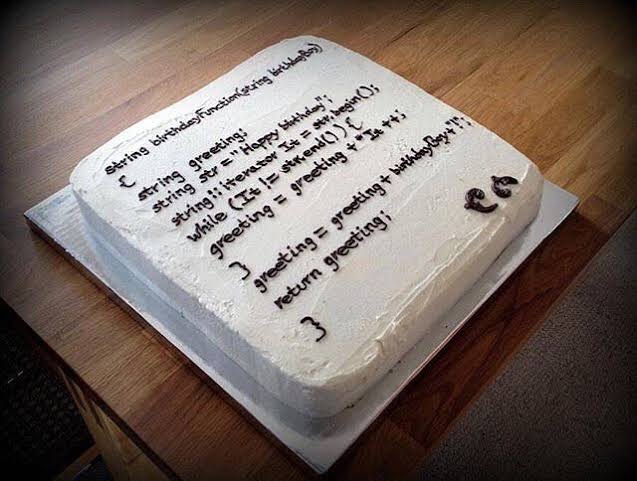 string birthdayFunction(string birthdayBoy)
{
string greeting;
string str = "Happy birthday";
string::iterator It = str.begin();
while (It != str.end()) {
greeting = greeting + *It ++;
}
greeting = greeting + birthdayBoy + "!";
return greeting;
}